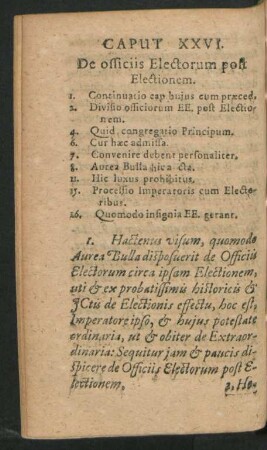 CAPUT XXVI.
De officiis Electorum post
Electionem.
1. Continuatio cap hujus cum præced.
2. Divisio officiorum EE. post Electio-
nem.
4. Quid congregatio Principum.
6. Cur hæc admissa.
7. Convenire debent personaliter,
8. Aurea Bulla
11. Hic luxus prohibitus.
15. Processio Imperatoris cum Electo-
ribus.
26. Quomodo insignia EE. gerant.
1. Hactenus visum, quomodo
Aurea Bulla disposuerit de Officiis
Electorum circa ipsam Electionem,
uti & ex probatissimis historicis &
JCtis de Electionis effectu, hoc est,
Imperatore ipso, & hujus potestate
ordinaria, ut & obiter de Extraor-
dinaria: Sequitur jam & paucis di-
spicere de Officiis Electorum post E-
lectionem,
2. He-